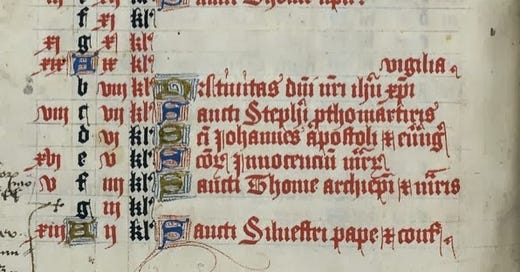 aucti Thome apli
f xi kl
xi g x kl
xix A ix kl vigilia
b viii kl Natiuitas dni nri ihu xpi
viii c vii kl Sancti Stephi pthomartiris
d vi kl Sci Johannes apostoli &
xvi e v kl Scor Innocenciu
v f iiii kl Sancti Thome archiepi & mris
g iii kl
xiii A ii kl Sancti Siluestri pape & conf